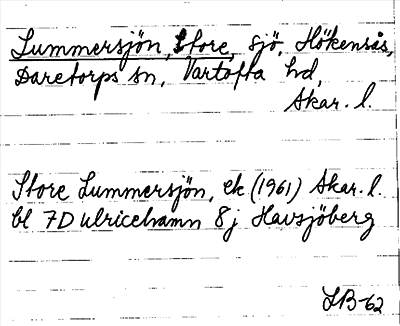 Lummersjön, Store, sjö, Hökensås,
Daretorps sn, Vartofta hd,
Skar. l.
Store Lummersjön, ek (1961) Skar. l.
bl 7D Ulricehamn 8j Havsjöberg
LB-62